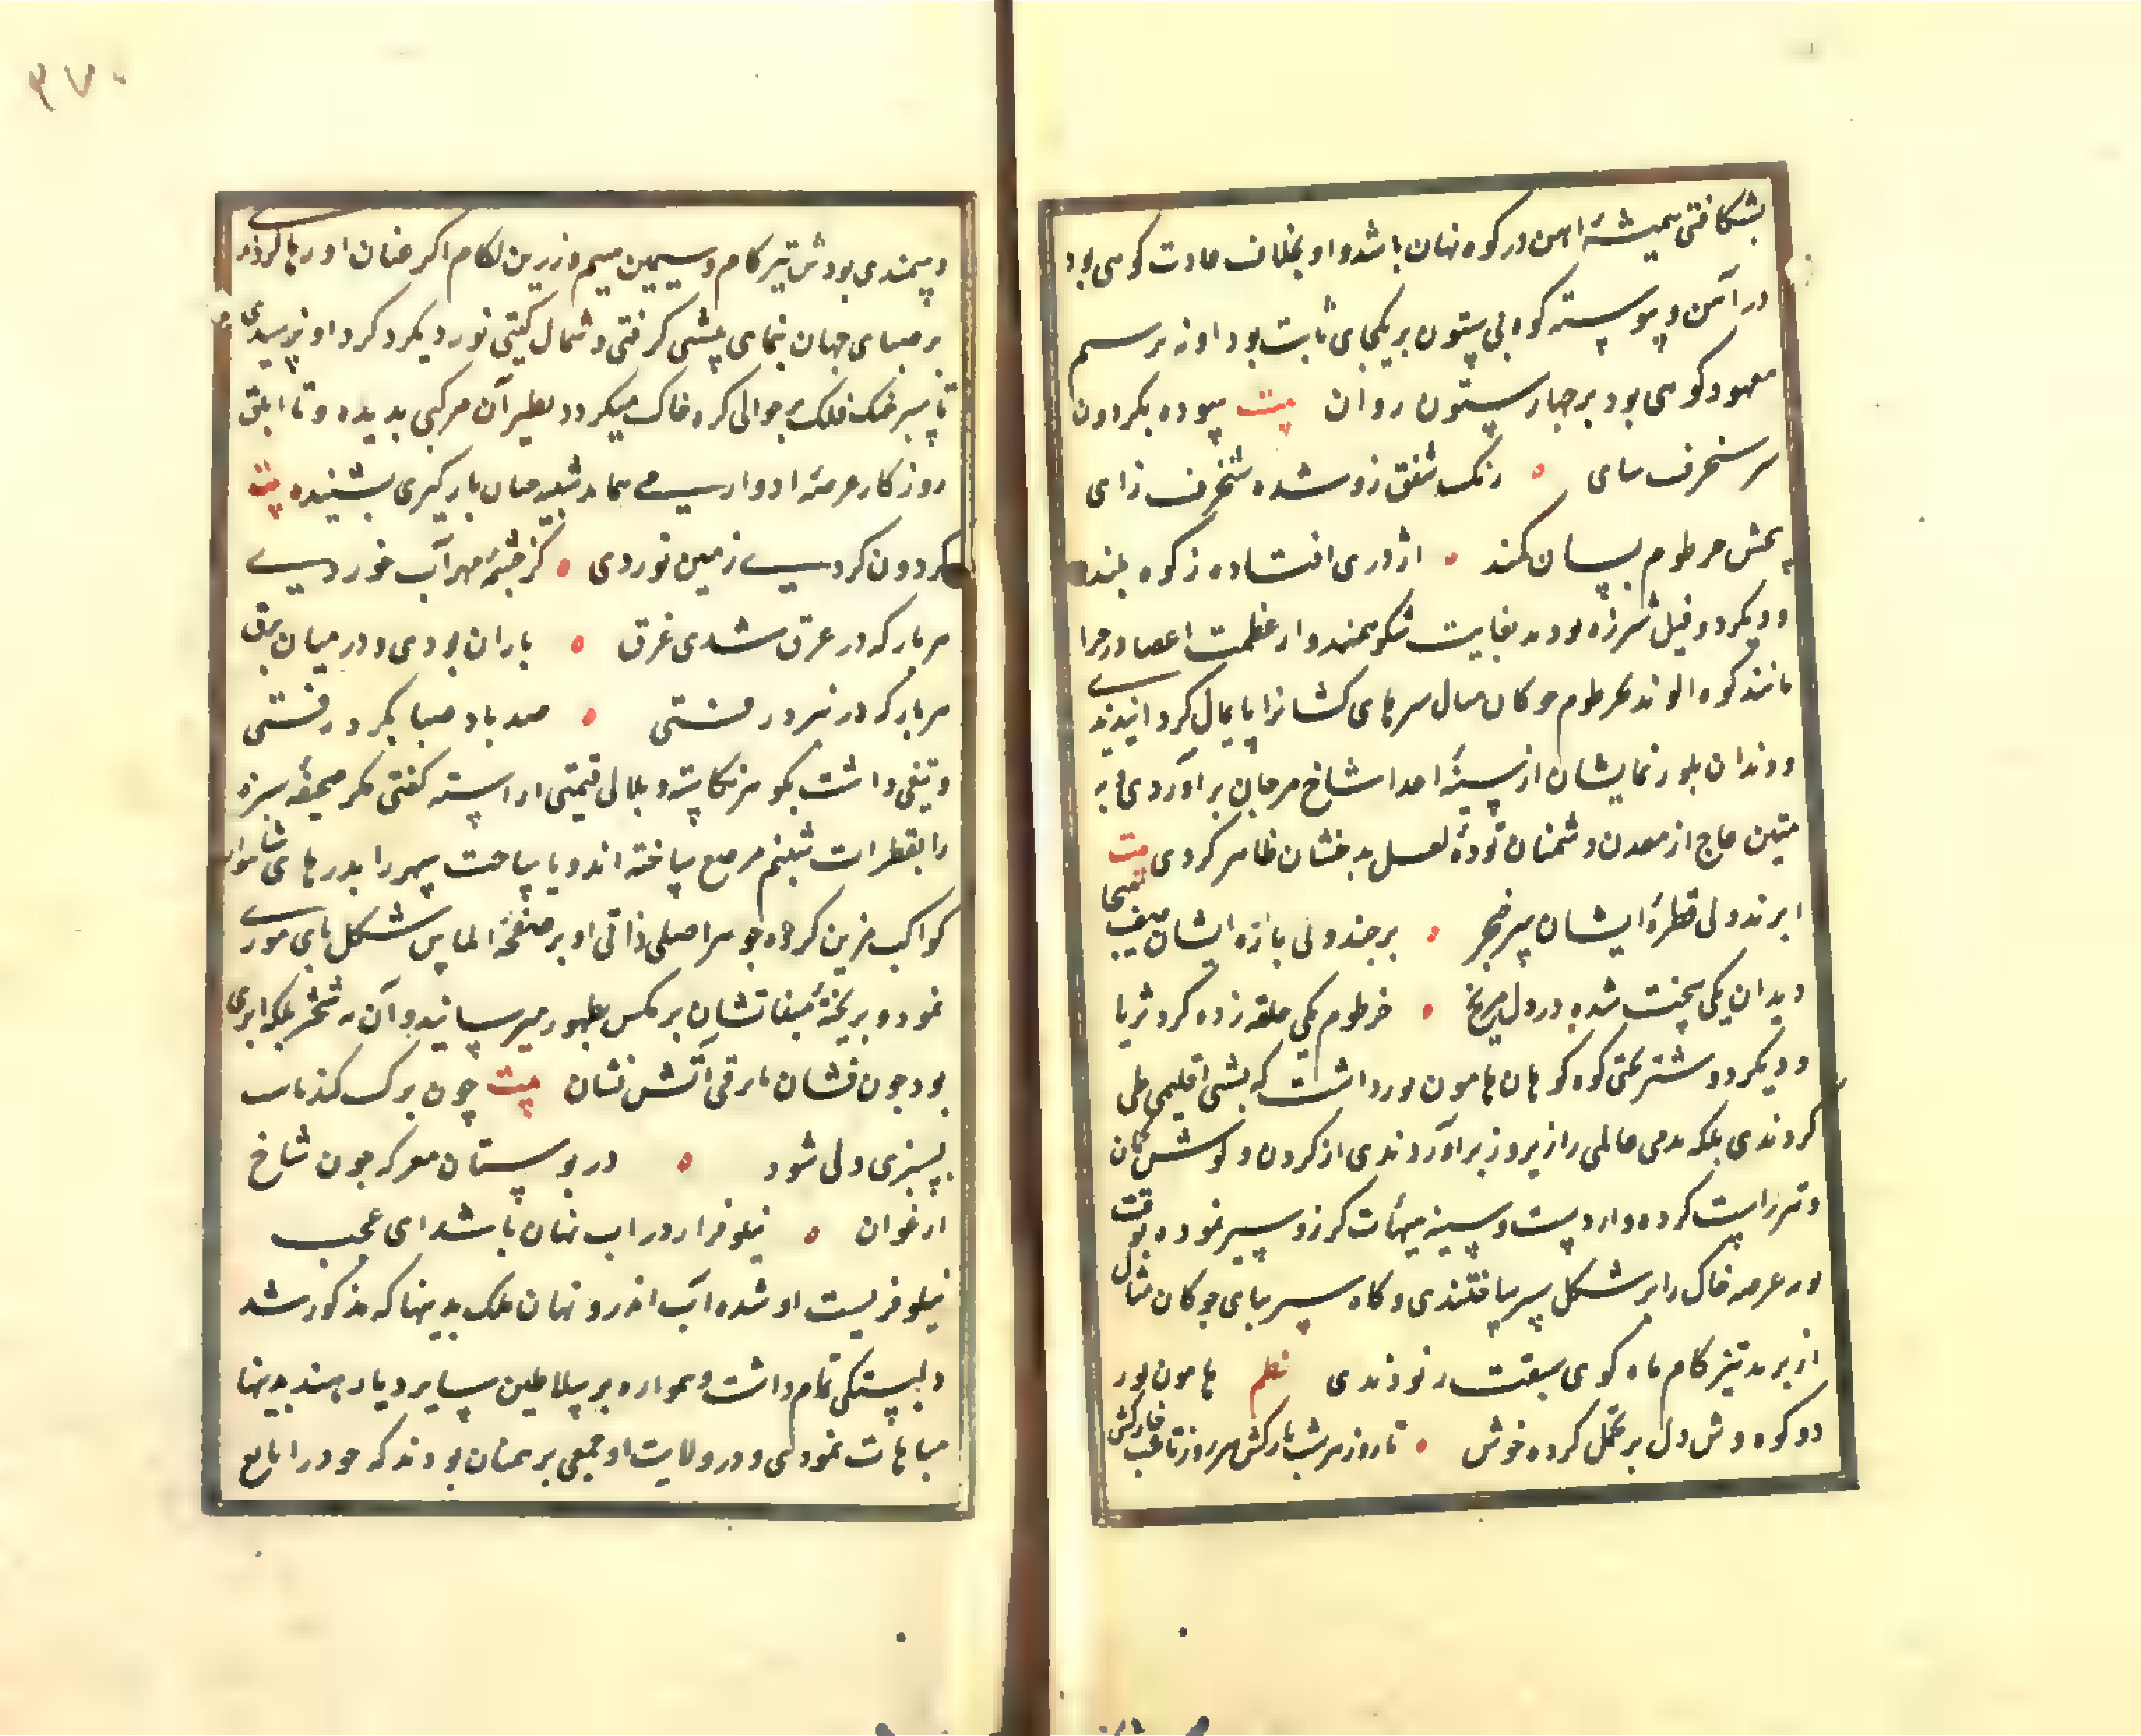 بشکافتی همیشه آهن در کوه نهان باشد و او بخلاف عادت کوهی بود
در آهن و پیوسته کوه بی ستون بر یکجای ثابت بود او نه بر رسم
معهود کوهی بود بر چهار ستون روان بیت سوده بگردون
سر شنجرف سای ه رنگ شفق زو شده شنجرف زای
خرطوم بسان کمند ه اژدری افتاده ز کوه بلند
و دیگر دو فیل شرزه بودند بغایت شکوهمند و از عظمت اعضا
مانند کوه الوند بخرطوم چوکان مثال سرهای کشانرا پایمال کردانیدندی
و دندان بلور نمایشان از سینه اعدا شاخ مرجان برآوردی به
متین عاج از معدن دشمنان توده لعل بدخشان ظاهر کردی بیت
ابرند ولی قطره ایشان سر خنجر ه ولی بازه ایشان
دندان یکی سخت شده در دل مریخ ه خرطوم یکی حلقه زده گرد ثریا
و دیگر دو شتر بختی کوه کوهان هامون نورد داشت که بشبی اقلیمی طی
کردندی بلکه بدمی عالمی را زیر و زبر آوردندی از کردن و گوش کمان
و تیر راست کرده دارد پشت و سینه بهیأت گرز و سپر نموده بوقت
در عرصه خاک را بر شکل سپر یافتندی و گاه سیر بپای چوکان مثال
از برید تیز کام ماه گوی سبقت ربودندی نظم هامون نور
دو کوه وش دل بر تحمل کرده خوش ه تا روز هر شب بارکش هر روز تا شب خارکش
۳۷۰
و سمندی بودش تیز کام و سیمین سم و زرین لگام اگر عنان او رها کردی
بر صبای جهان نمای پیشی گرفتی و شمال گیتی نورد بگرد گرد او نرسیدی
تا سبز خنک فلک بر حوالی کره خاک میگردد نظیر آن مرکبی ندیده و تا ابلق
روزگار عرصه ادوار می پیماید شبیه چنان بارگیری نشنیده بیت
گردون گردی زمین نوردی ه کز چشمه مهر آب خوردی
هر بار که در عرق شدی غرق ه باران بودی و در میان برق
هر بار که در نبرد رفتی ه صد باد صبا بگرد رفتی
و تیغی داشت بگوهر نگاشته و بلآلی قیمتی آراسته گفتی مگر صحیفه سبزه
را بقطرات شبنم مرصع ساخته اند و یا ساحت سپهر را بدرهای شاهوار
کواکب مزین کرده جوهر اصلی ذاتی او بر صفحه الماس شکل پای موری
نمود و بر تخته مینا نشان پر مگس بظهور میرسانید و آن نه خنجر بلکه ابری
بود خون فشان یا برقی آتش نشان بیت چون برگ گندناست
بسبزی ولی شود ه در بوستان معرکه چون شاخ
ارغوان ه نیلوفر ار در آب نهان باشد ای عجب
نیلوفریست او شده آب اندرو نهان ملک بدینها که مذکور شد
دلبستگی تمام داشت و همواره بر سلاطین سایر دیار هند بدینها
مباهات نمودی و در ولایت او جمعی برهمنان بودند که خود را تابع